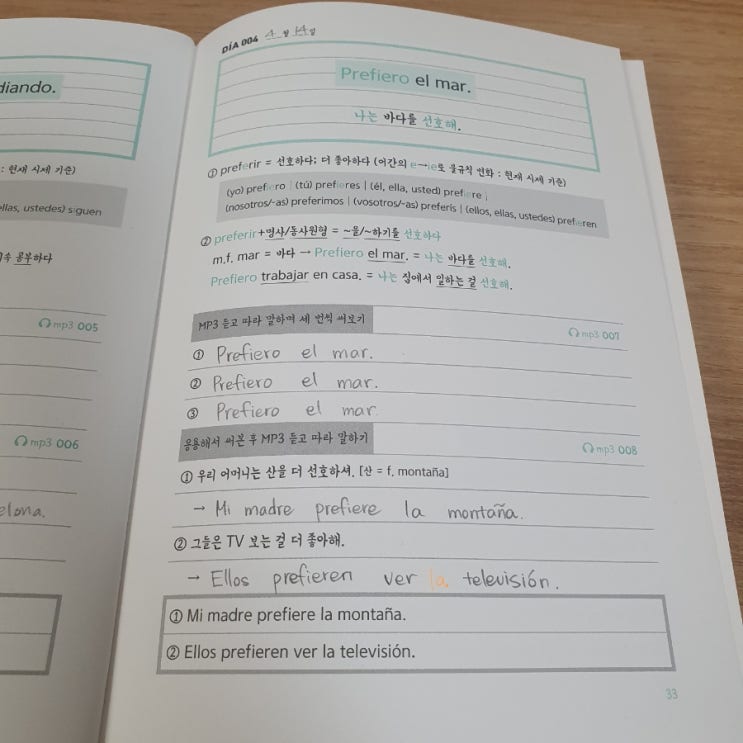 diando.
: 현재 시제 기준)
ellas, ustedes) siguen
속 공부하다
mp3 005
mp3 006
elona.
DÍA 004 4 월 14 일
Prefiero el mar.
나는 바다를 선호해.
① preferir = 선호하다; 더 좋아하다 (어간의 e→ie로 불규칙 변화 : 현재 시제 기준)
(yo) prefiero | (tú) prefieres | (él, ella, usted) prefiere |
(nosotros/-as) preferimos | (vosotros/-as) preferís | (ellos, ellas, ustedes) prefieren
② preferir+명사/동사원형 = ~을/~하기를 선호하다
m.f. mar = 바다 → Prefiero el mar. = 나는 바다를 선호해.
Prefiero trabajar en casa. = 나는 집에서 일하는 걸 선호해.
MP3 듣고 따라 말하며 세 번씩 써보기
mp3 007
① Prefiero el mar.
② Prefiero el mar.
③ Prefiero el mar
응용해서 써본 후 MP3 듣고 따라 말하기
mp3 008
① 우리 어머니는 산을 더 선호하셔. [산 = f. montaña]
→ Mi madre prefiere la montaña.
② 그들은 TV 보는 걸 더 좋아해.
→ Ellos prefieren ver la televisión.
① Mi madre prefiere la montaña.
② Ellos prefieren ver la televisión.
33